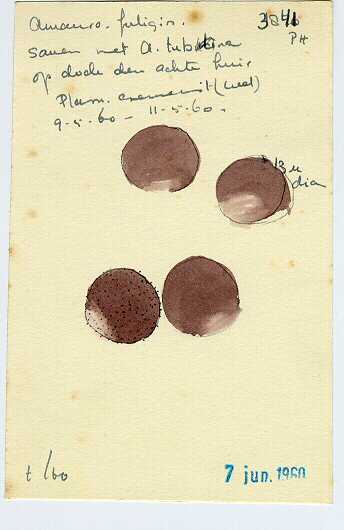 Amauro. fuligin.
samen met A. tubulina
op dode den achter huis
Plasm. (wit)
9-5-60 - 11-5-60.
3841
PH
13 u
dia
t/60
7 jun. 1960